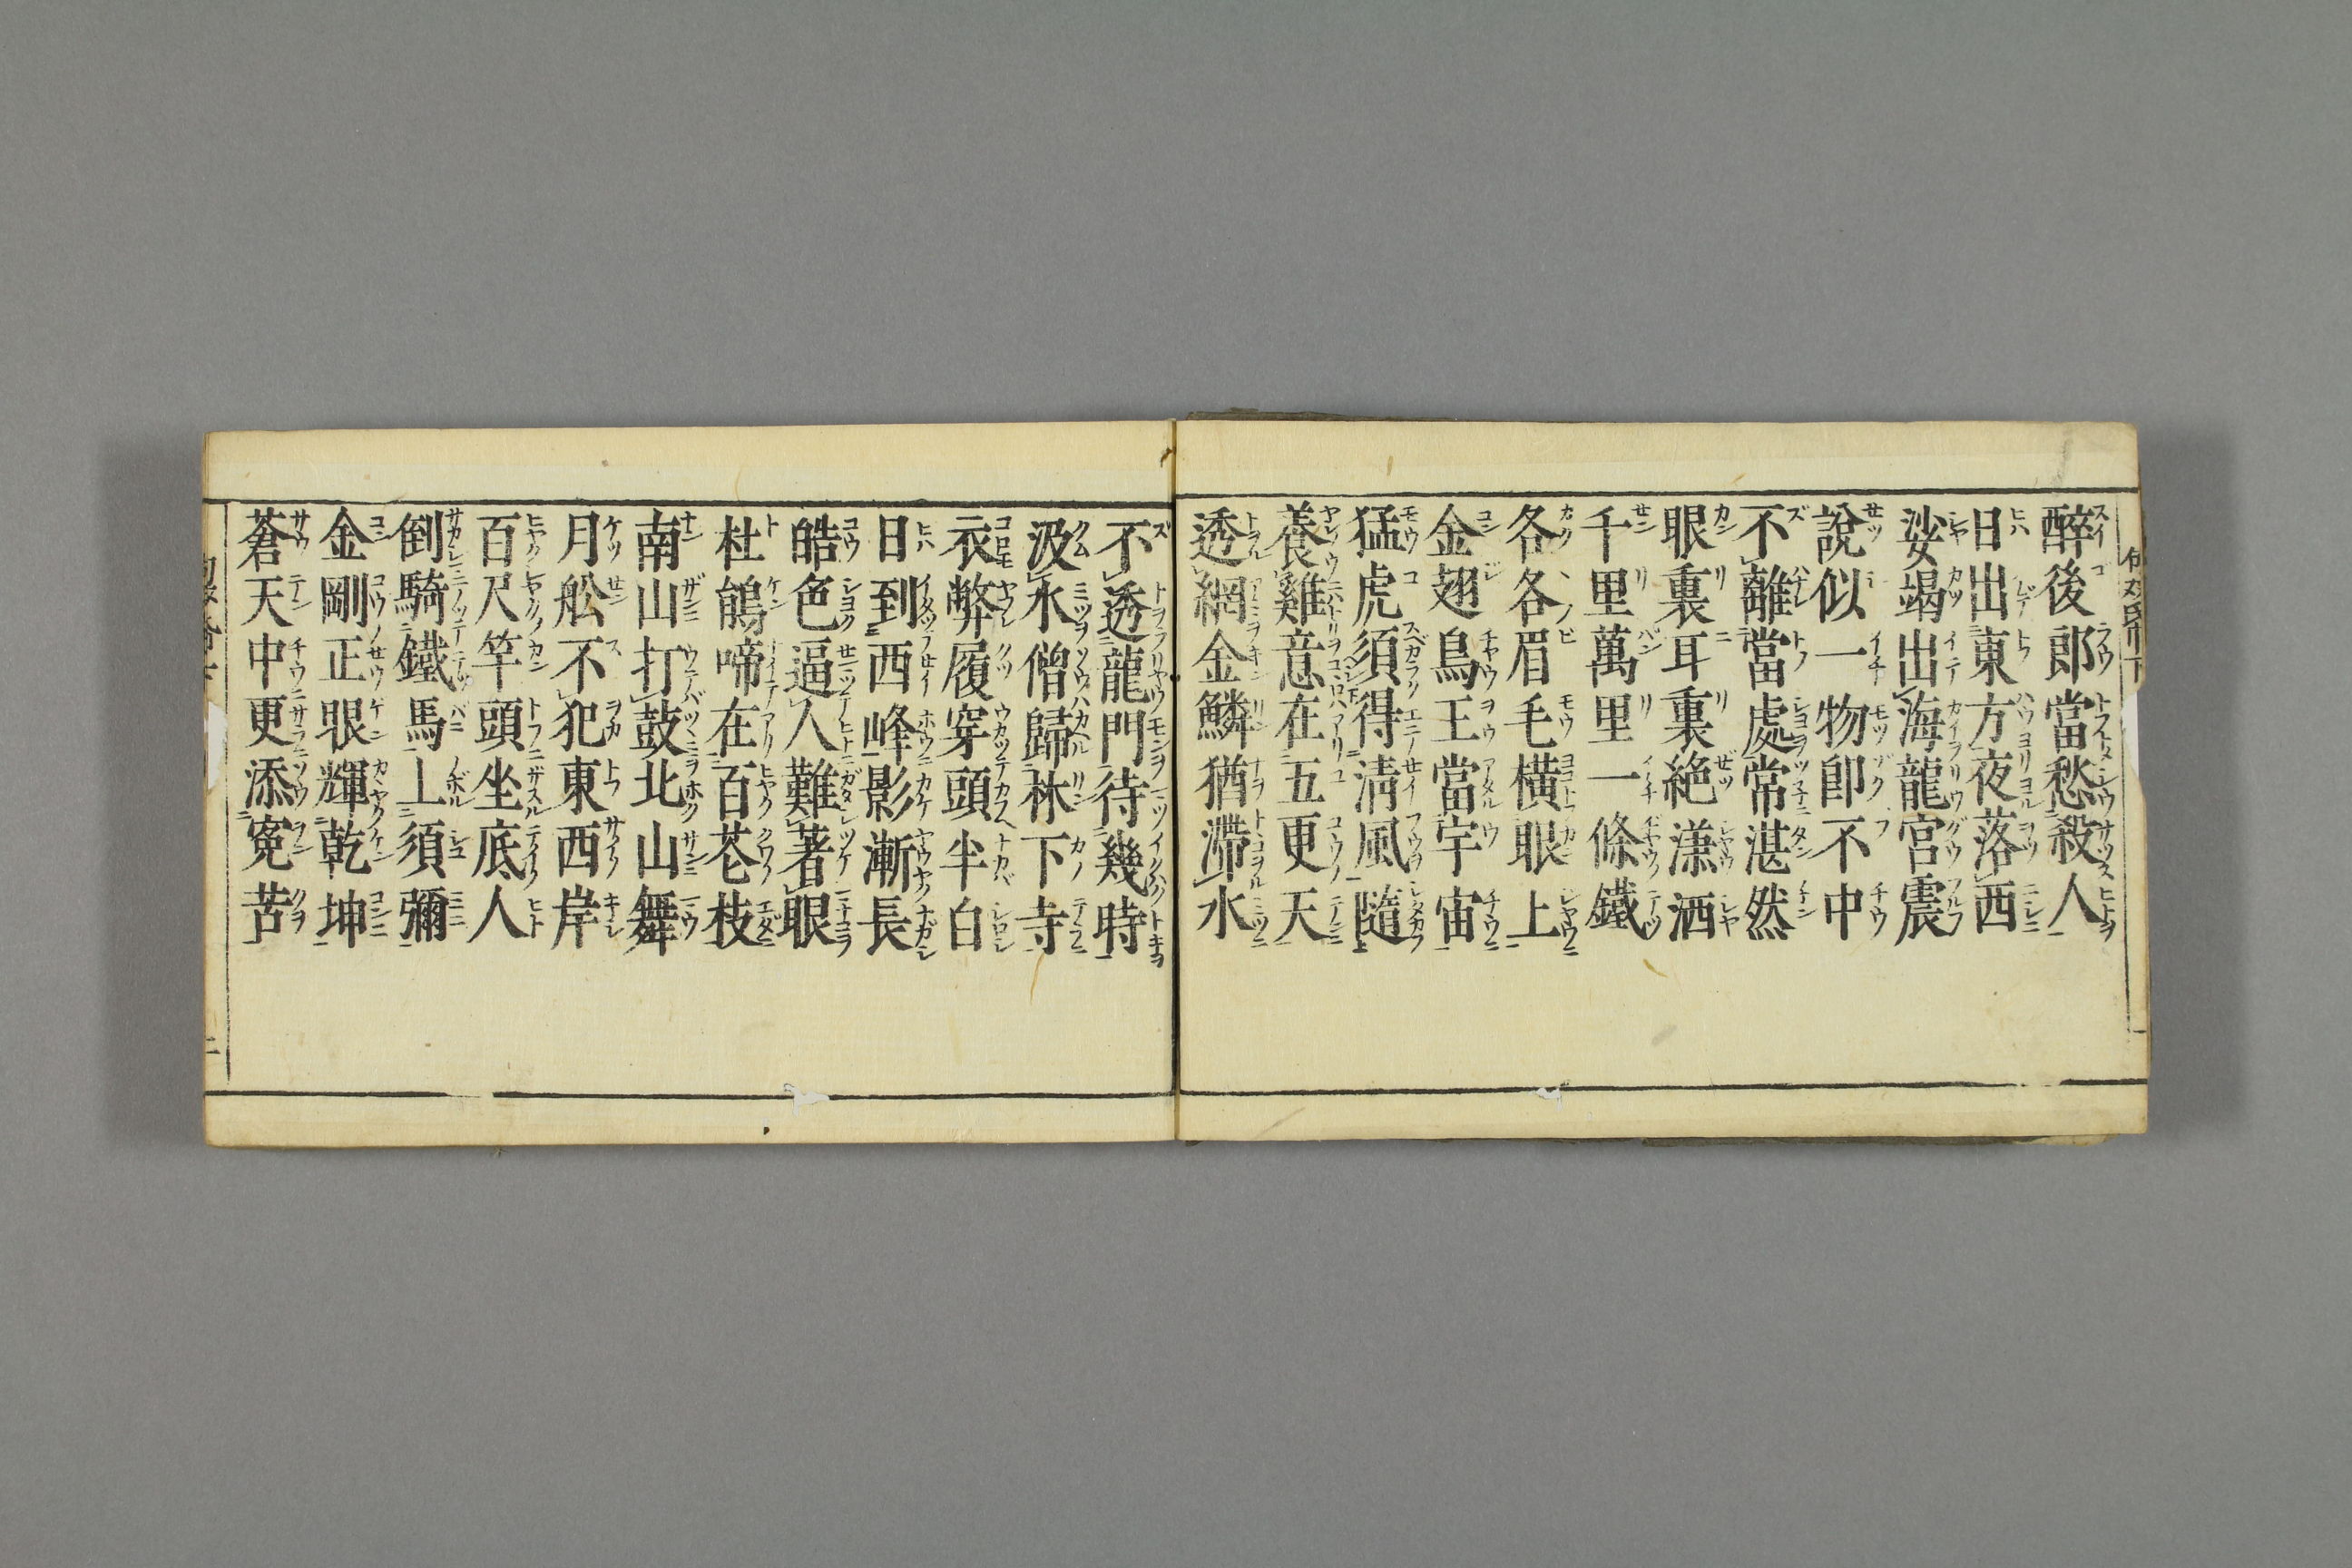 醉後郎當愁殺人
日出東方夜落西
娑竭出海龍宮震
說似一物卽不中
不離當處常湛然
眼裏耳裏絶瀟洒
千里萬里一條鐵
各各眉毛橫眼上
金翅鳥王當宇宙
猛虎須得淸風隨
養雞意在五更天
透網金鱗猶滯水
不透龍門待幾時
汲水僧歸林下寺
衣弊履穿頭半白
日到西峰影漸長
皓色逼人難著眼
杜鵑啼在百花枝
南山打鼓北山舞
月船不犯東西岸
百尺竿頭坐底人
倒騎鐵馬上須彌
金剛正眼輝乾坤
蒼天中更添冤苦